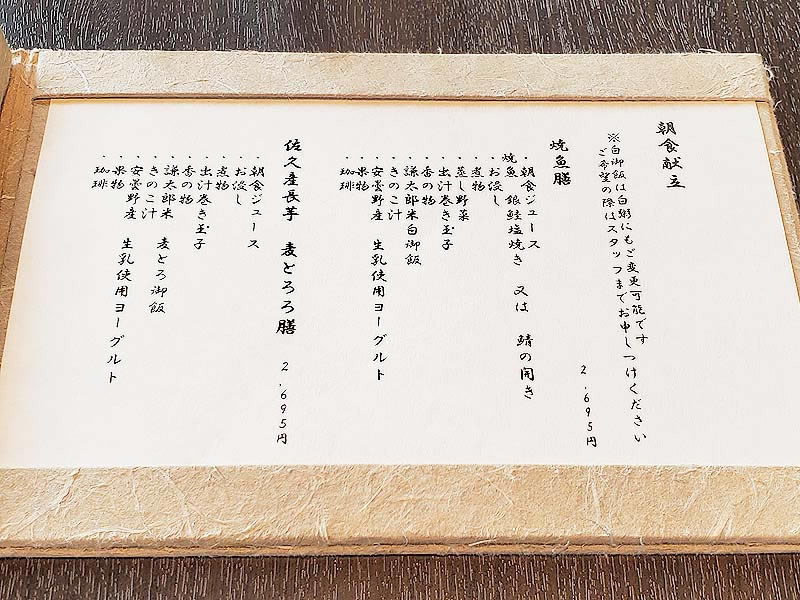 朝食献立
※白御飯は白粥にもご変更可能です
ご希望の際はスタッフまでお申しつけください
焼魚膳 2,695円
・朝食ジュース
・焼魚 銀鮭塩焼き 又は 鯖の開き
・お浸し
・煮物
・蒸し野菜
・出汁巻き玉子
・香の物
・謙太郎米白御飯
・きのこ汁
・安曇野産 生乳使用ヨーグルト
・果物
・珈琲
佐久産長芋 麦とろろ膳 2,695円
・朝食ジュース
・お浸し
・煮物
・出汁巻き玉子
・香の物
・謙太郎米 麦とろ御飯
・きのこ汁
・安曇野産 生乳使用ヨーグルト
・果物
・珈琲